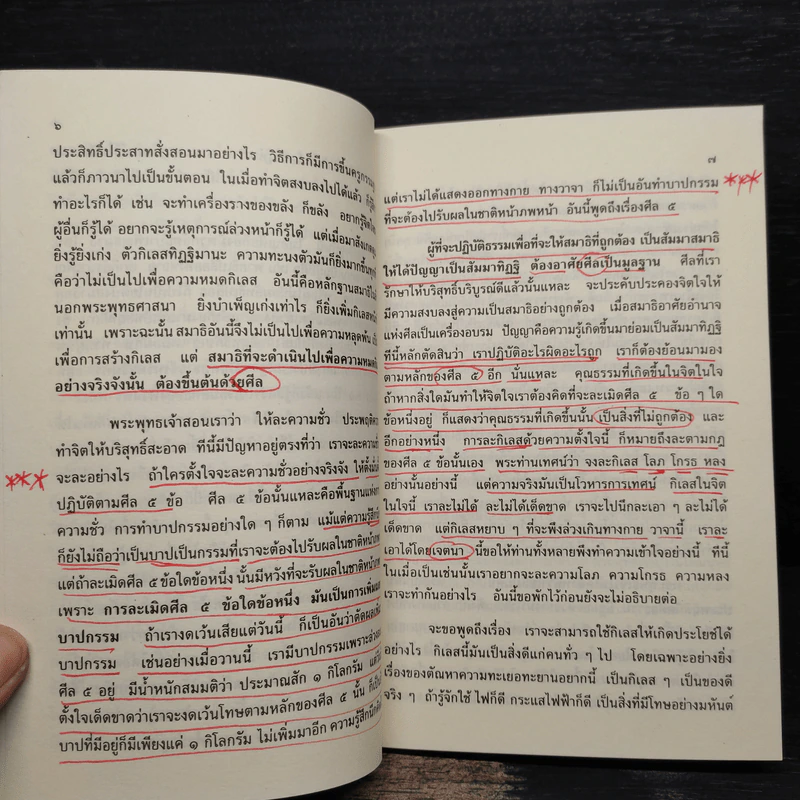 ๖
ประสิทธิ์ประสาทสั่งสอนมาอย่างไร วิธีการก็มีการขึ้นครูกรรมฐาน
แล้วก็ภาวนาไปเป็นขั้นตอน ในเมื่อทำจิตสงบลงไปได้แล้ว
ทำอะไรก็ได้ เช่น จะทำเครื่องรางของขลัง ก็ขลัง อยากรู้จิตใจ
ผู้อื่นก็รู้ได้ อยากจะรู้เหตุการณ์ล่วงหน้าก็รู้ได้ แต่เมื่อมาสังเกตดู
ยิ่งรู้ยิ่งเก่ง ตัวกิเลสทิฏฐิมานะ ความทะนงตัวมันก็ยิ่งมากขึ้นทุกที
คือว่าไม่เป็นไปเพื่อความหมดกิเลส อันนี้คือหลักฐานสมาธิใน
นอกพระพุทธศาสนา ยิ่งบำเพ็ญเก่งเท่าไร ก็ยิ่งเพิ่มกิเลสหนัก
เท่านั้น เพราะฉะนั้น สมาธิอันนี้จึงไม่เป็นไปเพื่อความหลุดพ้น
เพื่อการสร้างกิเลส แต่ สมาธิที่จะดำเนินไปเพื่อความหมดกิเลส
อย่างจริงจังนั้น ต้องขึ้นต้นด้วยศีล
พระพุทธเจ้าสอนเราว่า ให้ละความชั่ว ประพฤติความ
ทำจิตให้บริสุทธิ์สะอาด ทีนี้มีปัญหาอยู่ตรงที่ว่า เราจะละความชั่ว
จะละอย่างไร ถ้าใครตั้งใจจะละความชั่วอย่างจริงจัง ให้ตั้งมั่น
*** ปฏิบัติตามศีล ๕ ข้อ ศีล ๕ ข้อนั้นแหละคือพื้นฐานแห่งการ
ความชั่ว การทำบาปกรรมอย่างใด ๆ ก็ตาม แม้แต่ความรู้สึก
ก็ยังไม่ถือว่าเป็นบาปเป็นกรรมที่เราจะต้องไปรับผลในชาติหน้าภพ
แต่ถ้าละเมิดศีล ๕ ข้อใดข้อหนึ่ง นั้นมีหวังที่จะรับผลในชาติหน้า
เพราะ การละเมิดศีล ๕ ข้อใดข้อหนึ่ง มันเป็นการเพิ่มผล
บาปกรรม ถ้าเรางดเว้นเสียแต่วันนี้ ก็เป็นอันว่าตัดผลเพิ่ม
บาปกรรม เช่นอย่างเมื่อวานนี้ เรามีบาปกรรมเพราะล่วง
ศีล ๕ อยู่ มีน้ำหนักสมมติว่า ประมาณสัก ๑ กิโลกรัม แต่
ตั้งใจเด็ดขาดว่าเราจะงดเว้นโทษตามหลักของศีล ๕ นั้น ก็เป็น
บาปที่มีอยู่ก็มีเพียงแค่ ๑ กิโลกรัม ไม่เพิ่มมาอีก ความรู้สึกนึกคิด
๗
แต่เราไม่ได้แสดงออกทางกาย ทางวาจา ก็ไม่เป็นอันทำบาปกรรม ***
ที่จะต้องไปรับผลในชาติหน้าภพหน้า อันนี้พูดถึงเรื่องศีล ๕
ผู้ที่จะปฏิบัติธรรมเพื่อที่จะให้สมาธิที่ถูกต้อง เป็นสัมมาสมาธิ
ให้ได้ปัญญาเป็นสัมมาทิฏฐิ ต้องอาศัยศีลเป็นมูลฐาน ศีลที่เรา
รักษาให้บริสุทธิ์บริบูรณ์ดีแล้วนั้นแหละ จะประคับประคองจิตใจให้
มีความสงบลงสู่ความเป็นสมาธิอย่างถูกต้อง เมื่อสมาธิอาศัยอำนาจ
แห่งศีลเป็นเครื่องอบรม ปัญญาคือความรู้เกิดขึ้นมาย่อมเป็นสัมมาทิฏฐิ
ทีนี้หลักตัดสินว่า เราปฏิบัติอะไรผิดอะไรถูก เราก็ต้องย้อนมามอง
ตามหลักของศีล ๕ อีก นั้นแหละ คุณธรรมที่เกิดขึ้นในจิตในใจ
ถ้าหากสิ่งใดมันทำให้จิตใจเราต้องคิดที่จะละเมิดศีล ๕ ข้อ ๆ ใด
ข้อหนึ่งอยู่ ก็แสดงว่าคุณธรรมที่เกิดขึ้นนั้น เป็นสิ่งที่ไม่ถูกต้อง และ
อีกอย่างหนึ่ง การละกิเลสด้วยความตั้งใจนี้ ก็หมายถึงละตามกฎ
ของศีล ๕ ข้อนั้นเอง พระท่านเทศน์ว่า จงละกิเลส โลภ โกรธ หลง
อย่างนั้นอย่างนี้ แต่ความจริงมันเป็นโวหารการเทศน์ กิเลสในจิต
ในใจนี้ เราละไม่ได้ ละไม่ได้เด็ดขาด เราจะไปนึกละเอา ๆ ละไม่ได้
เด็ดขาด แต่กิเลสหยาบ ๆ ที่จะพึงล่วงเกินทางกาย วาจานี้ เราละ
เอาได้โดยเจตนา นี้ขอให้ท่านทั้งหลายพึงทำความเข้าใจอย่างนี้ ทีนี้
ในเมื่อเป็นเช่นนั้นเราอยากจะละความโลภ ความโกรธ ความหลง
เราจะทำกันอย่างไร อันนี้ขอพักไว้ก่อนยังจะไม่อธิบายต่อ
จะขอพูดถึงเรื่อง เราจะสามารถใช้กิเลสให้เกิดประโยชน์ได้
อย่างไร กิเลสนี้มันเป็นสิ่งดีแก่คนทั่ว ๆ ไป โดยเฉพาะอย่างยิ่ง
เรื่องของตัณหาความทะเยอทะยานอยากนี้ เป็นกิเลส ๆ เป็นของดี
จริง ๆ ถ้ารู้จักใช้ ไฟก็ดี กระแสไฟฟ้าก็ดี เป็นสิ่งที่มีโทษอย่างมหันต์